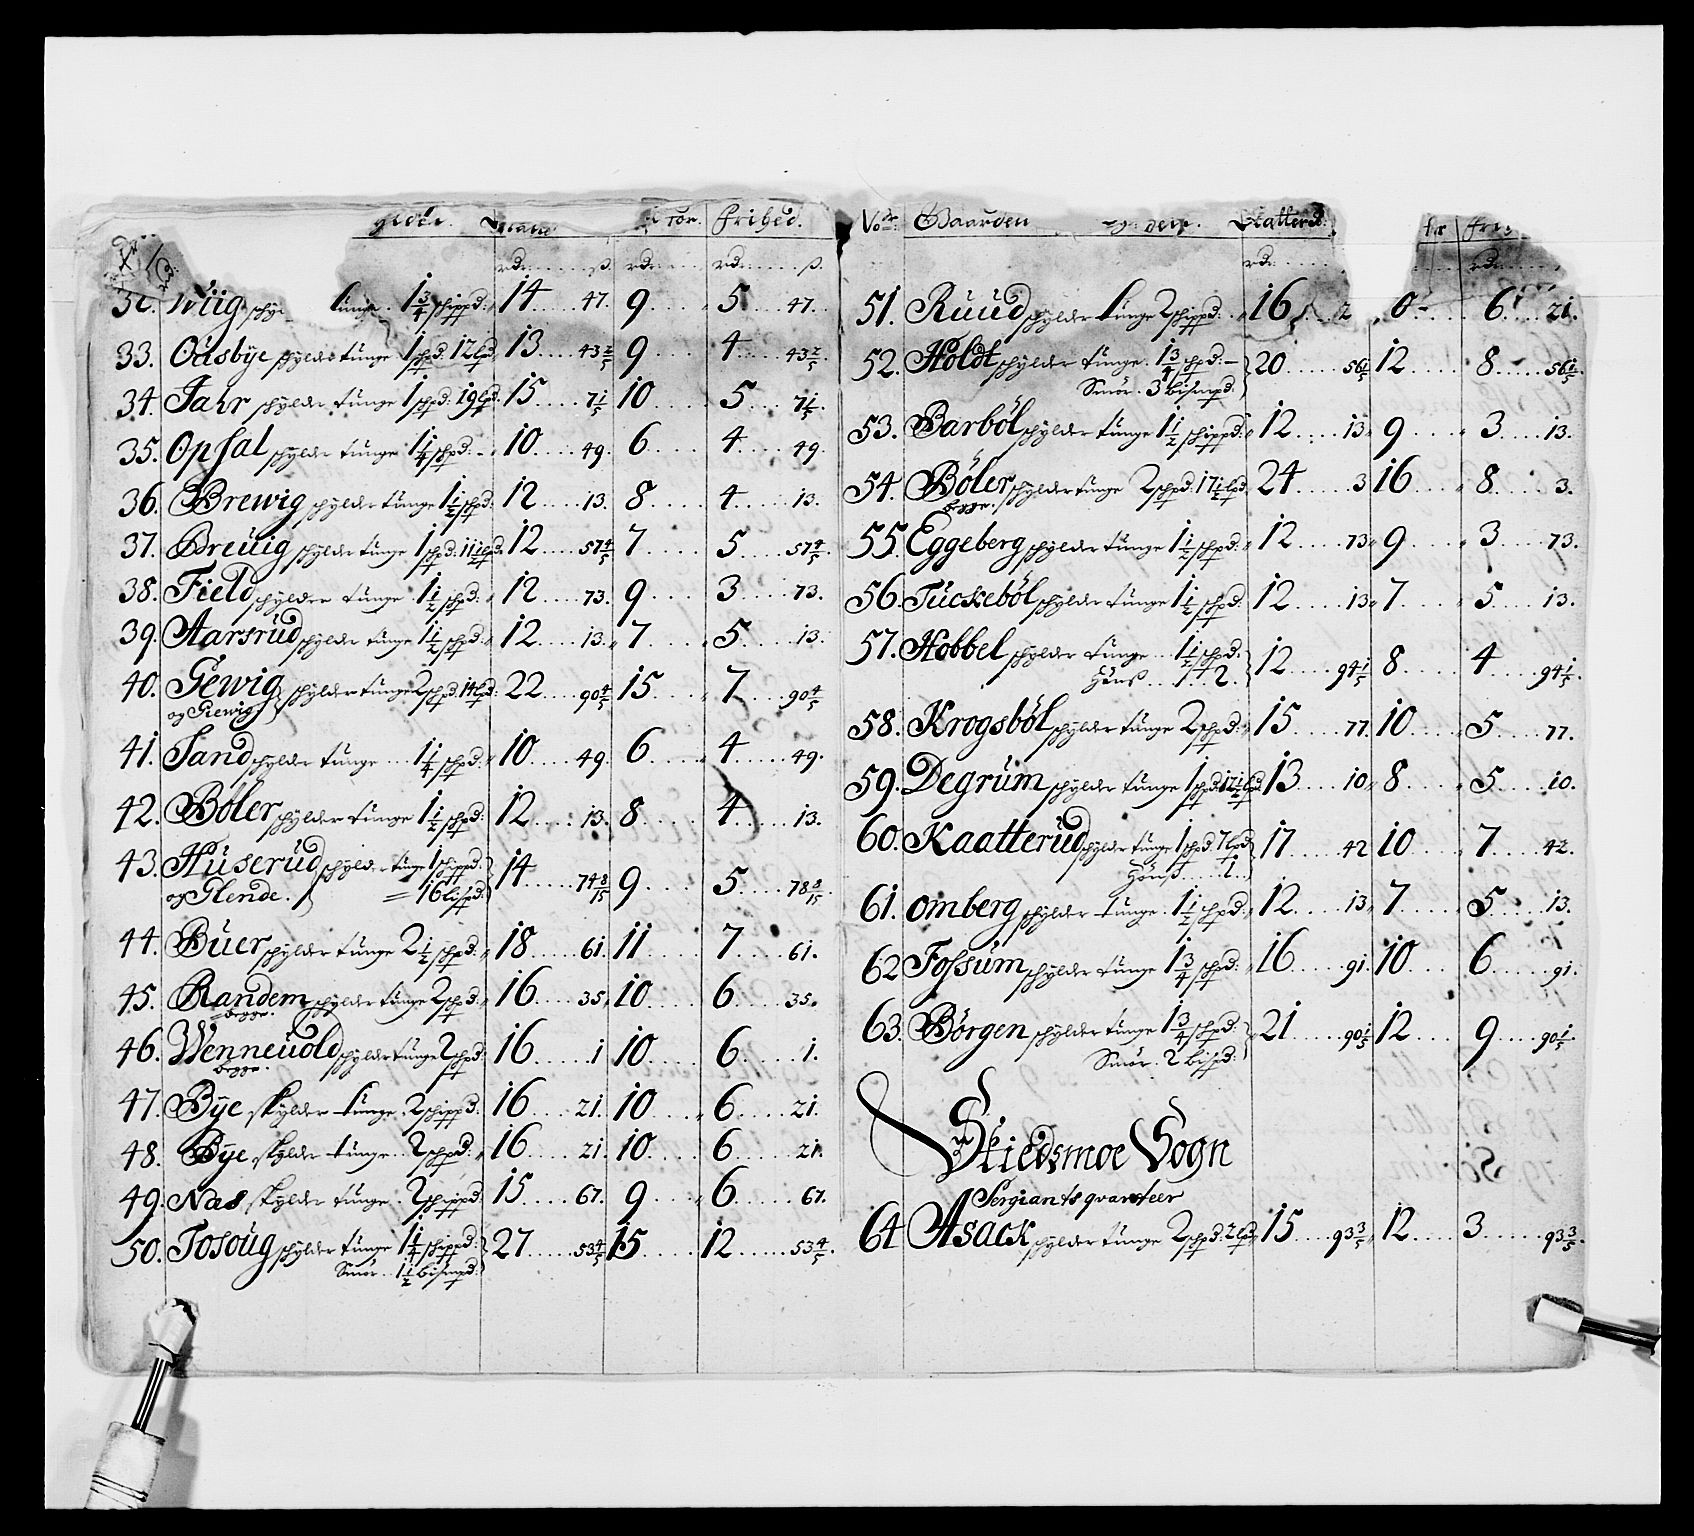 Fribed.
rdr: ß. rdr: rdr: ß.
32. Wiig tunge. 1 3/4 schippd: 14 47. 9 5 47.
33. Odsbye schylder tunge 1 schpd. 12 lpd. 13 43 2/5 9 4 43 2/5
34. Jahr schylder tunge 1 schpd. 19 lpd. 15 71/5 10 5 71/5.
35. Opsal schylder tunge 1 1/4 schpd. 10 49. 6 4 49.
36. Brewig schylder tunge 1 1/2 schpd: 12 13. 8 4 13.
37. Breuig schylder tunge 1 schpd. 11 1/2 lpd. 12 57 4/5 7 5 57 4/5
38. Field schylder tunge 1 1/2 schpd: 12 73. 9 3 73.
39. Aarsrud schylder tunge 1 1/2 schpd: 12 13. 7 5 13.
40. Gewig schylder tunge 2 schpd. 14 lpd: 22 90 4/5 15 7 90 4/5
og Giewig
41. Sand schylder tunge 1 1/4 schpd: 10 49. 6 4 49.
42. Böler schylder tunge 1 1/2 schpd: 12 13. 8 4 13.
43. Huserud schylder tunge 1 schippd. 14 74 8/15 9 5 78 8/15
og Glende. = 16 lispd.
44. Buer schylder tunge 2 1/2 schpd: 18 61. 11 7 61.
45. Randem schylder tunge 2 schpd: 16 35. 10 6 35.
begge.
46. Wenneuold schylder tunge 2 schpd: 16 1 10 6 1.
begge.
47. Bÿe skylder tunge 2 schippd. 16 21. 10 6 21.
48. Bÿe skylder tunge 2 schpd: 16 21. 10 6 21.
49. Nas skylder tunge 2 schippd 15 67. 9 6 67.
50. Tosoug schylder tunge 1 1/4 schippd: 27 53 4/5 15 12 53 4/5.
Smör 1 1/2 bismpd:
No: Gaarden Skatterd:
rdr: rdr:
51. Ruud schylder tunge 2 schippd: 16 6 21.
52. Holdt schylder tunge 1 3/4 schpd: 20 56 1/5 12 8 56 1/5.
Smör. 3 bismpd:
53. Barböl schylder tunge 1 1/2 schippd: 12 13. 9 3 13.
54. Böler schylder tunge 2 schpd. 17 1/2 lpd. 24 3 16 8 3.
begge.
55. Eggeberg schylder tunge 1 1/2 schpd: 12 73 9 3 73.
56. Tuckeböl schylder tunge 1 1/2 schpd: 12 13. 7 5 13.
57. Hobbel schylder tunge 1 1/2 schpd: 12 94 1/5 8 4 94 1/5.
Huuß 2.
58. Krogsböl schylder tunge 2 schpd: 15 77. 10 5 77.
59. Degrum schylder tunge 1 schpd. 17 1/2 lpd. 13 10. 8 5 10.
60. Kaatterud schylder tunge 1 schpd. 7 lpd. 17 42 10 7 42.
Huuß 1.
61. omberg schylder tunge 1 1/2 schpd: 12 13. 7 5 13.
62 Fossum schylder tunge 1 3/4 schpd: 16 91. 10 6 91.
63. Börgen schylder tunge 1 3/4 schpd: 21 90 1/5 12 9 90 1/5.
Smör. 2 bispd:
Skiedsmoe Sogn
Sergiants qvarteer
64 Asack schylder tunge 2 schpd. 2 lpd: 15 93 3/5 12 3 93 3/5.